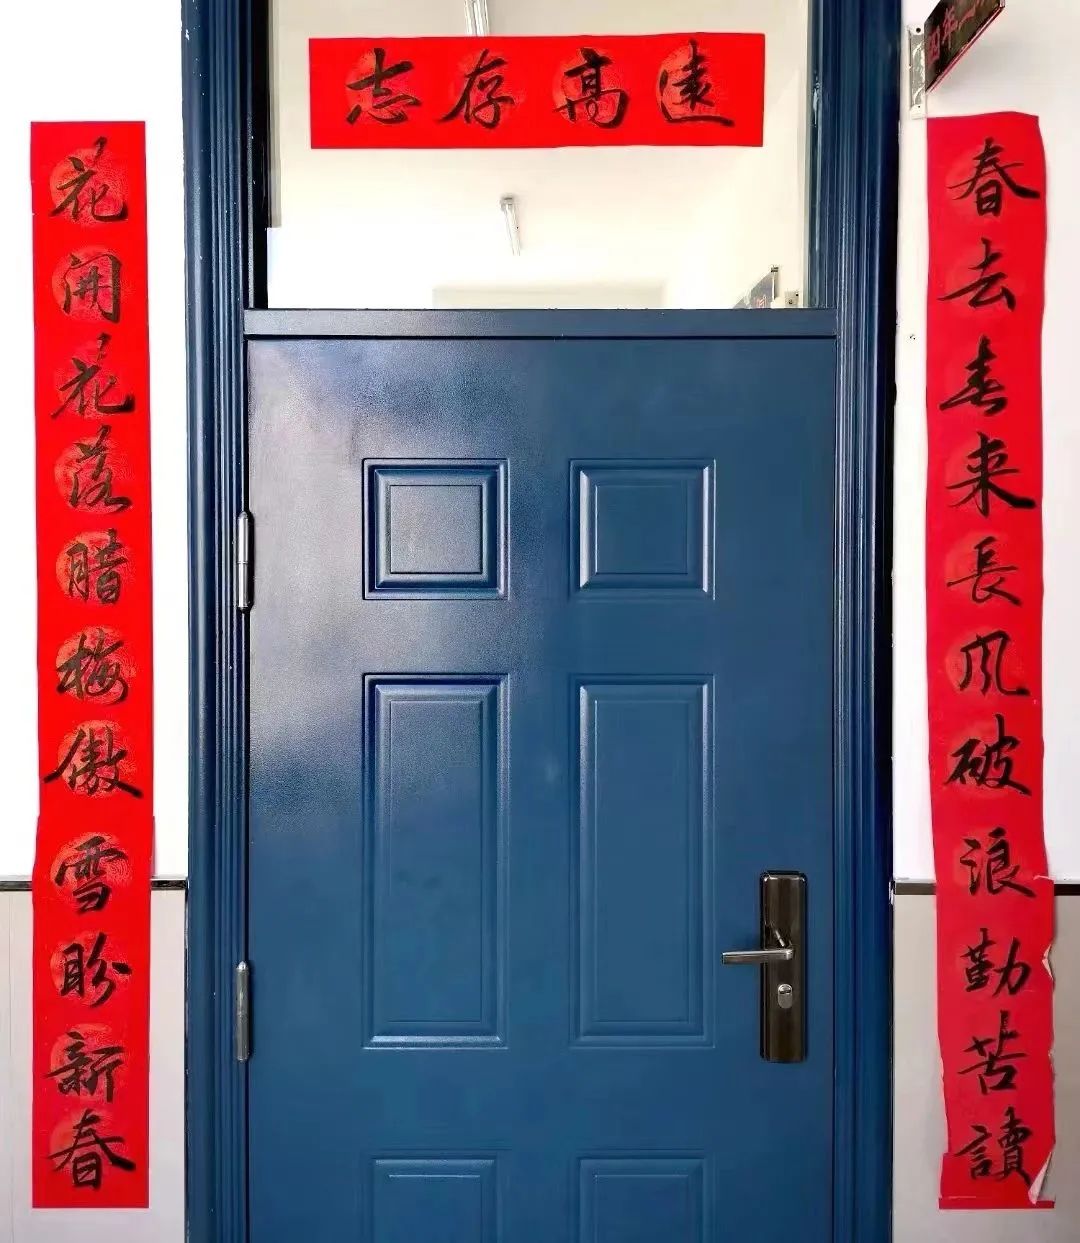 志存高远
春去春来長风破浪勤苦讀
花開花落腊梅傲雪盼新春
四年一